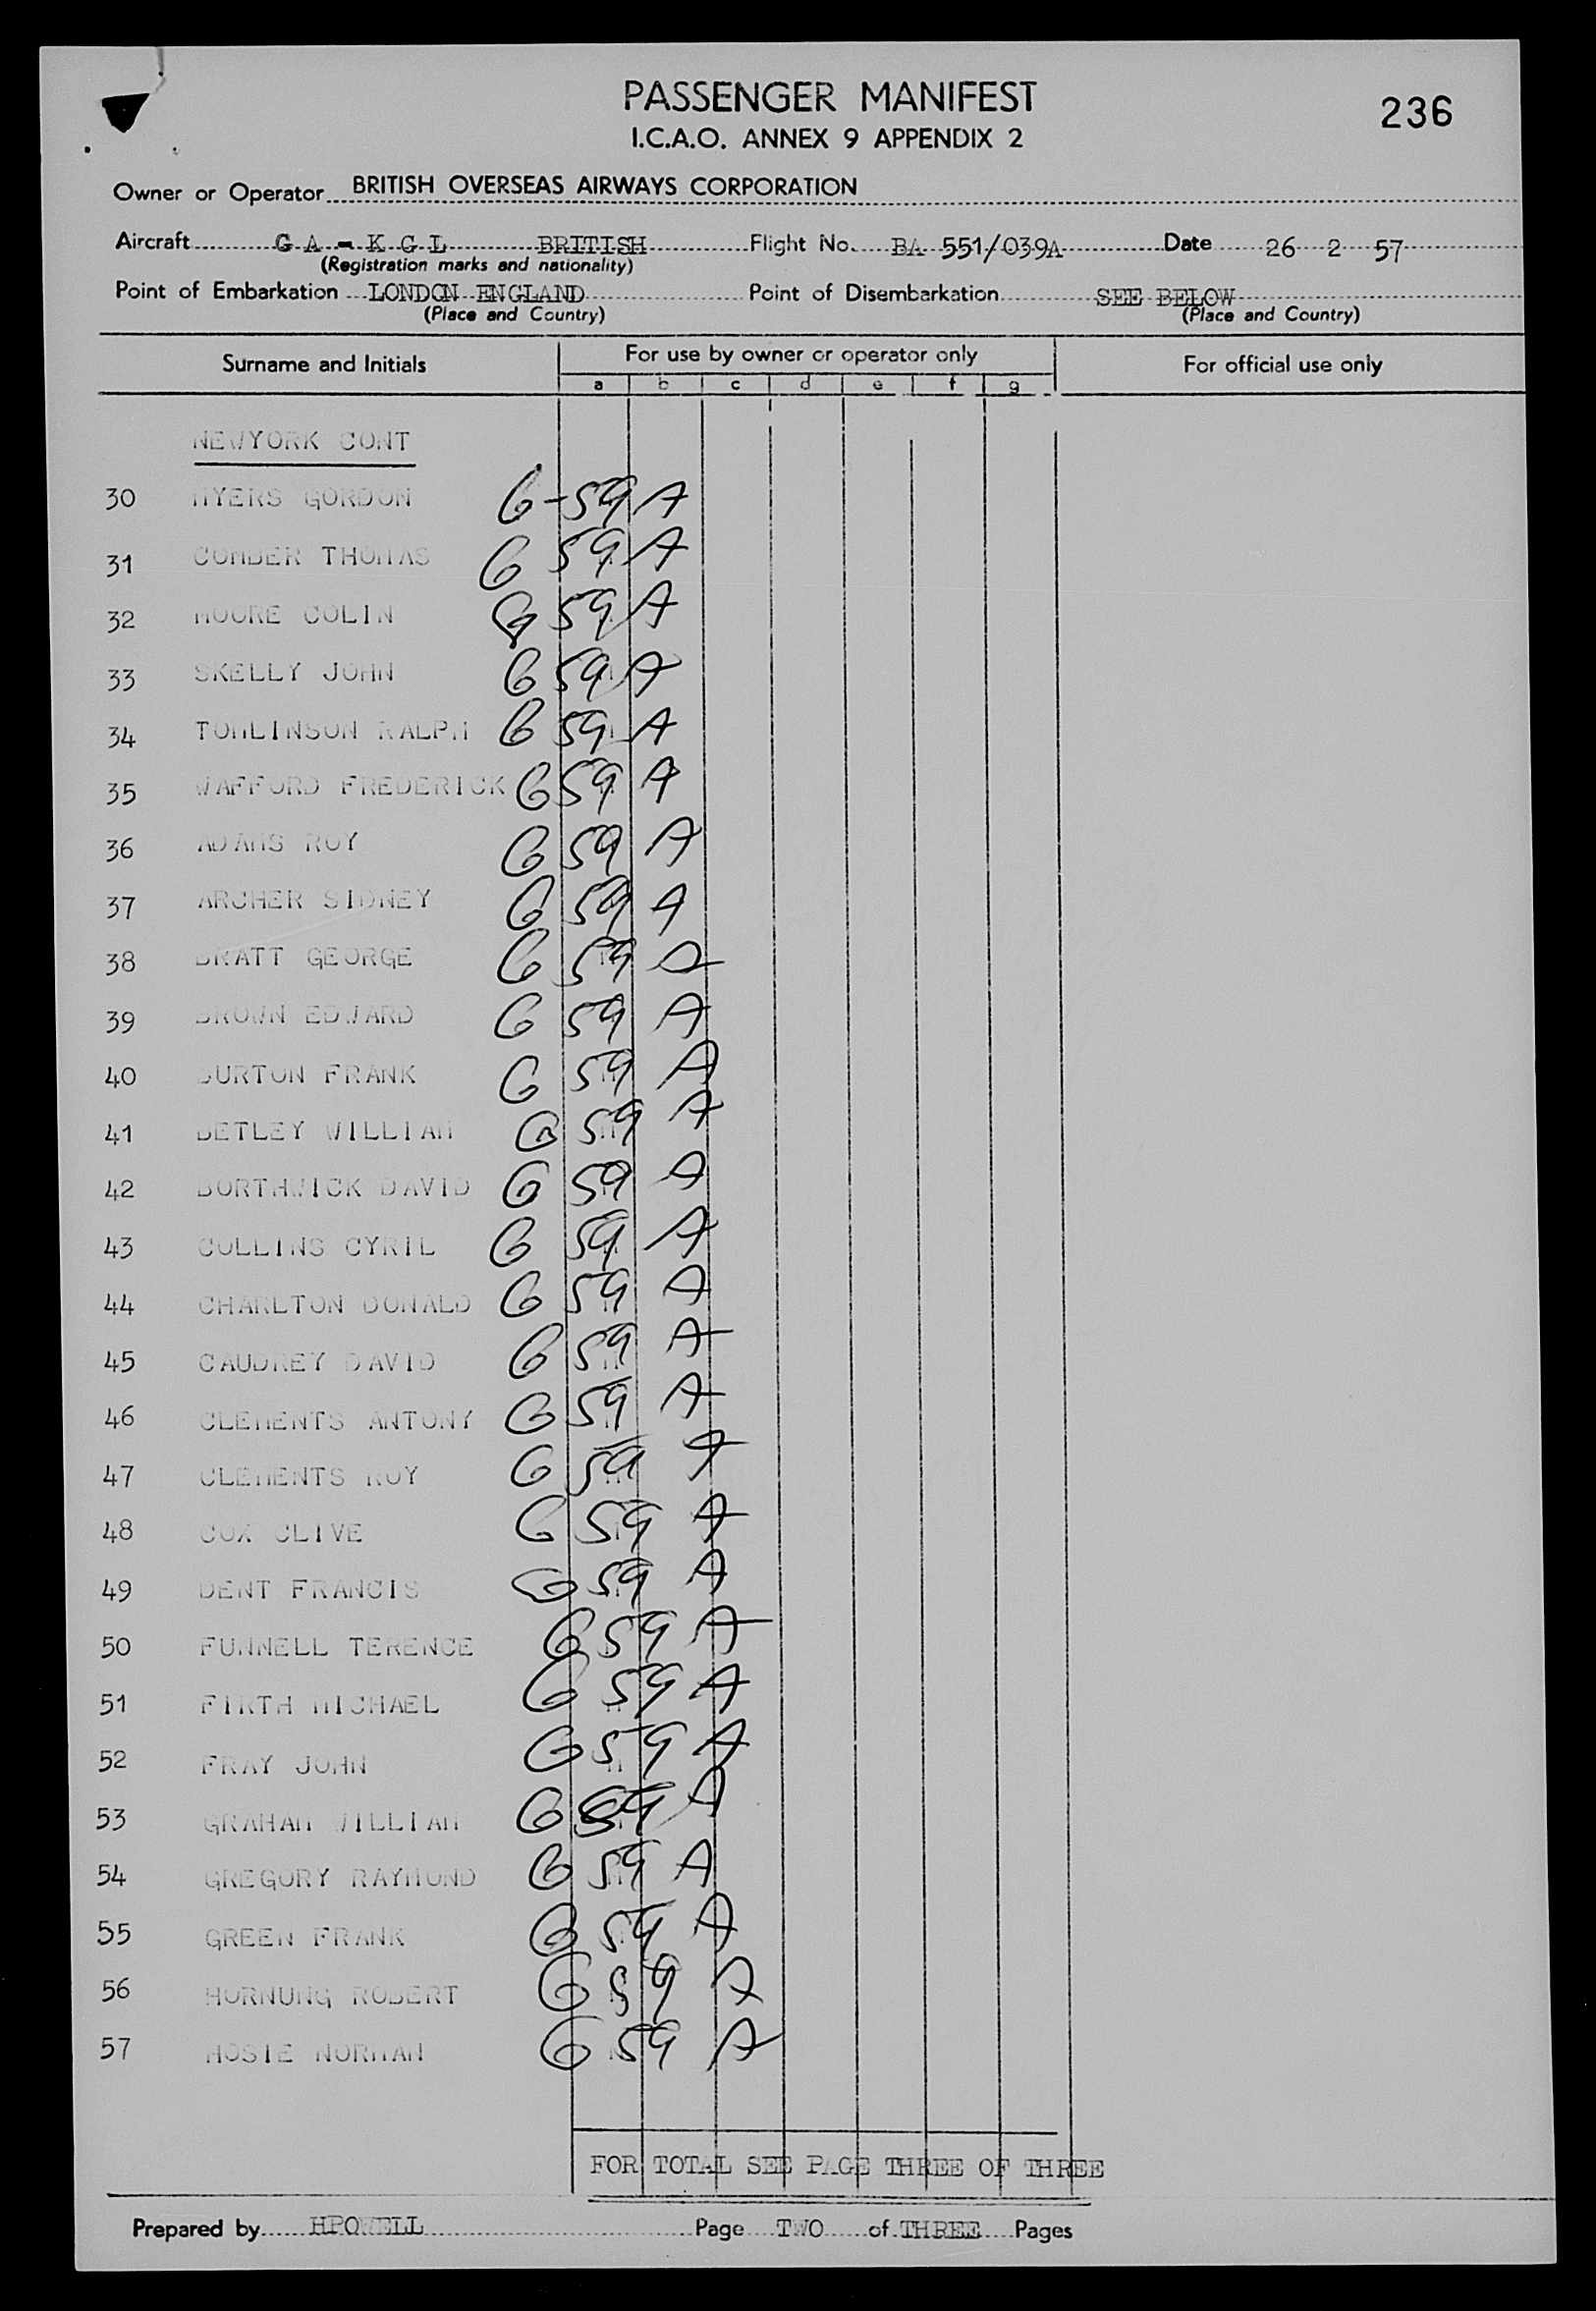 PASSENGER MANIFEST
236
I.C.A.O. ANNEX 9 APPENDIX 2
Owner or Operator BRITISH OVERSEAS AIRWAYS CORPORATION
Aircraft G A - K G L BRITISH Flight No. BA 551/039A Date 26 2 57
(Registration marks and nationality)
Point of Embarkation LONDON ENGLAND Point of Disembarkation SEE BELOW
(Place and Country) (Place and Country)
Surname and Initials For use by owner or operator only For official use only
a b c d e f g
NEWYORK CONT
30 MYERS GORDON G-59 A
31 COMBER THOMAS G 59 A
32 MOORE COLIN G 59 A
33 SKELLY JOHN G 59 A
34 TOMLINSON RALPH G 59 A
35 WAFFORD FREDERICK G 59 A
36 ADAMS ROY G 59 A
37 ARCHER SIDNEY G 59 A
38 BRATT GEORGE G 59 A
39 BROWN EDWARD G 59 A
40 BURTON FRANK G 59 A
41 BETLEY WILLIAM G 59 A
42 BORTHWICK DAVID G 59 A
43 COLLINS CYRIL G 59 A
44 CHARLTON DONALD G 59 A
45 CAUDREY DAVID G 59 A
46 CLEMENTS ANTONY G 59 A
47 CLEMENTS ROY G 59 A
48 COX CLIVE G 59 A
49 DENT FRANCIS G 59 A
50 FUNNELL TERENCE G 59 A
51 FIRTH MICHAEL G 59 A
52 FRAY JOHN G 59 A
53 GRAHAM WILLIAM G 59 A
54 GREGORY RAYMOND G 59 A
55 GREEN FRANK G 59 A
56 HORNUNG ROBERT G 59 A
57 HOSIE NORMAN G 59 A
FOR TOTAL SEE PAGE THREE OF THREE
Prepared by HPOWELL Page TWO of THREE Pages